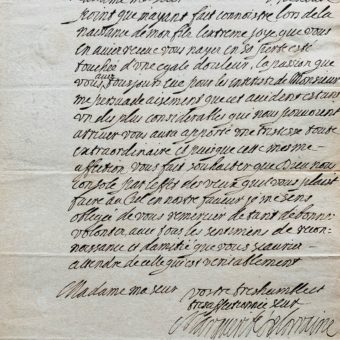 point que m'ayant fait connoistre lors de la
naissance de mon fils l'extreme joye que vous
en aviez receue vous n'ayez en sa perte esté
touchée d'une egale douleur, la passion que
vous avez tousjours eue pour les interests de Monsieur
me persuade aisement que cet accident estant
un des plus considerables qui nous pouvoient
arriver vous aura apporté une tristesse toute
extraordinaire et puisque cette mesme
affection vous fait souhaiter que Dieu nous
console par l'effet des vœux qu'il vous plaist
faire au Ciel en nostre faveur je me sens
obligée de vous remercier de tant de bonne
volonté avec tous les sentimens de recon-
noissance et d'amitié que vous sçauriez
attendre de celle qui est veritablement
Madame ma seur
vostre tres humble et
tres affectionnée seur
Marguerite de Lorraine